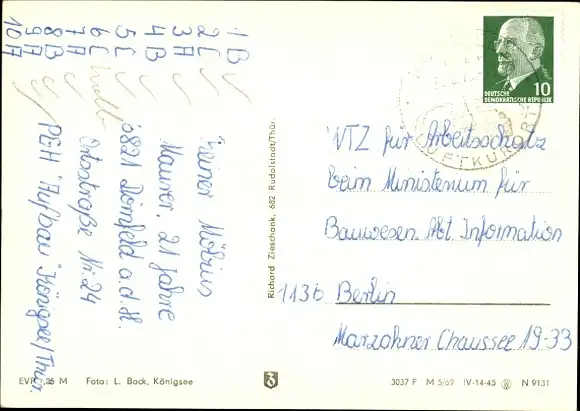 1 B
2 C
3 A
4 B
5 C
6 C
7 A
8 B
9 A
10 A
Rainer Möbius
Maurer, 21 Jahre
6821 Dörnfeld a.d.H.
Ortsstraße Nr. 24
PGH "Aufbau" Königsee/Thür.
Richard Zieschank, 682 Rudolstadt/Thür.
10
DEUTSCHE
DEMOKRATISCHE REPUBLIK
LUFTKURORT
WTZ für Arbeitsschutz
beim Ministerium für
Bauwesen Abt. Information
1136 Berlin
Marzahner Chaussee 19-33
EVP -,25 M Foto: L. Bock, Königsee
3037 F M 5/69 IV-14-45 N 9131